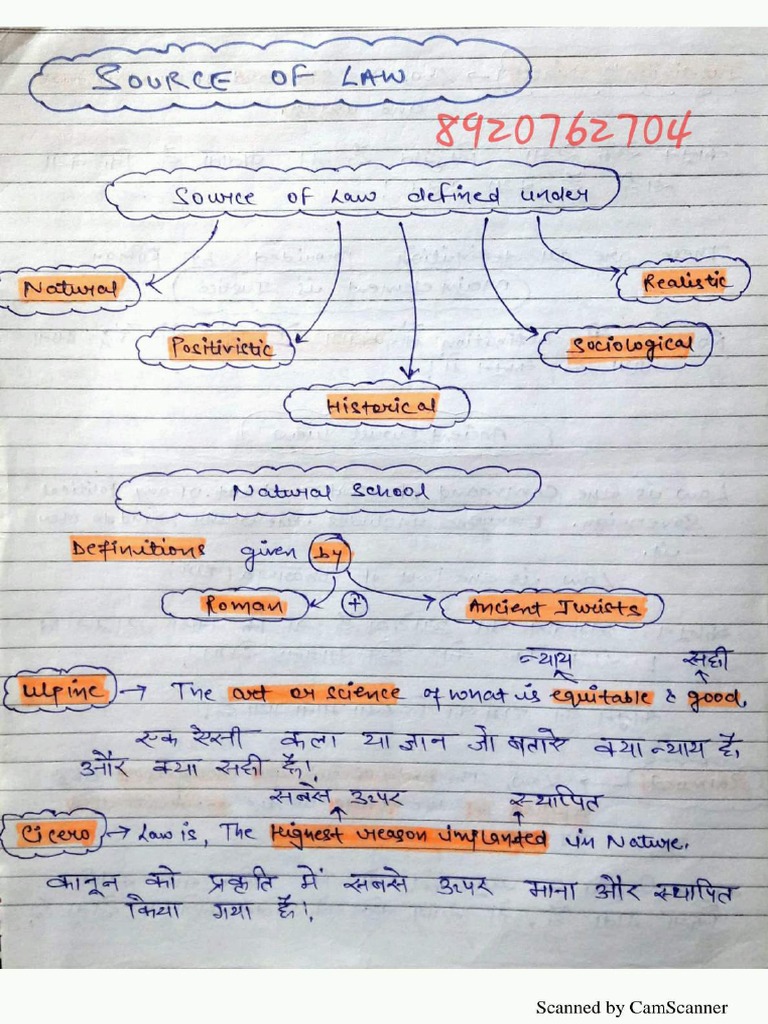 SOURCE OF LAW
8920762704
Source of Law defined under
Natural
Realistic
Positivistic
Sociological
Historical
Natural School
Definitions given by
Roman + Ancient Jurists
न्याय सही
Ulpine → The art or science of what is equitable & good.
एक ऐसी कला या ज्ञान जो बताऐ क्या न्याय है,
और क्या सही है।
सबसे ऊपर स्थापित
Cicero → Law is, The Highest reason implanted in Nature.
कानून को प्रकृति में सबसे ऊपर माना और स्थापित
किया गया है।
Scanned by CamScanner